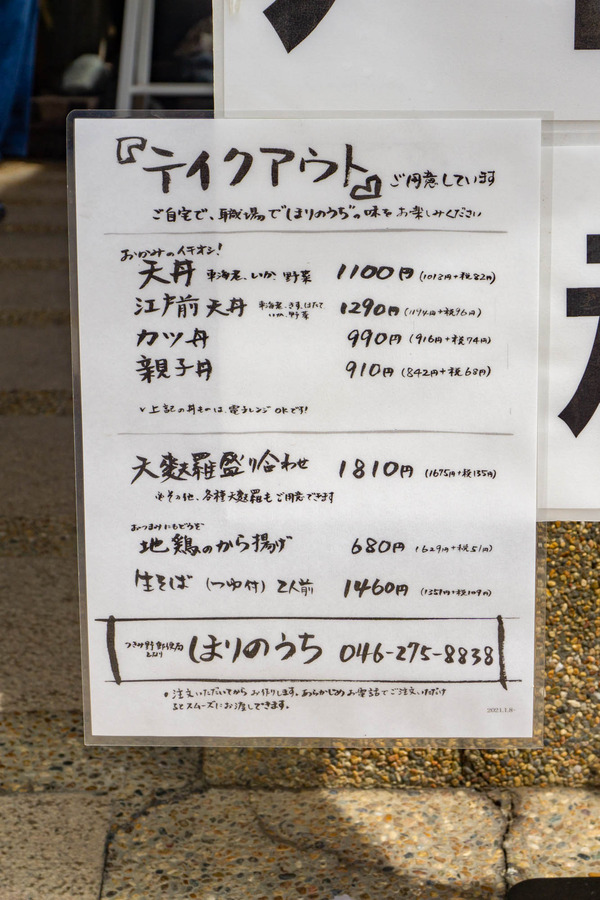 『テイクアウト』ご用意しています
ご自宅で、職場で"ほりのうち"の味をお楽しみください
おかみのイチオシ!
天丼 車海老、いか、野菜 1100円 (1018円+税82円)
江戸前天丼 車海老、きす、ほたて いか、野菜 1290円 (1194円+税96円)
カツ丼 990円 (916円+税74円)
親子丼 910円 (842円+税68円)
✓上記の丼ものは、電子レンジOKです!
天麩羅盛り合わせ 1810円 (1675円+税135円)
※その他、各種天麩羅もご用意できます
おつまみにもどうぞ
地鶏のから揚げ 680円 (629円+税51円)
生そば (つゆ付) 2人前 1460円 (1351円+税109円)
つきみ野郵便局 となり ほりのうち 046-275-8838
●ご注文いただいてからお作りします。あらかじめお電話でご注文いただけ
るとスムーズにお渡しできます。
2021.1.8